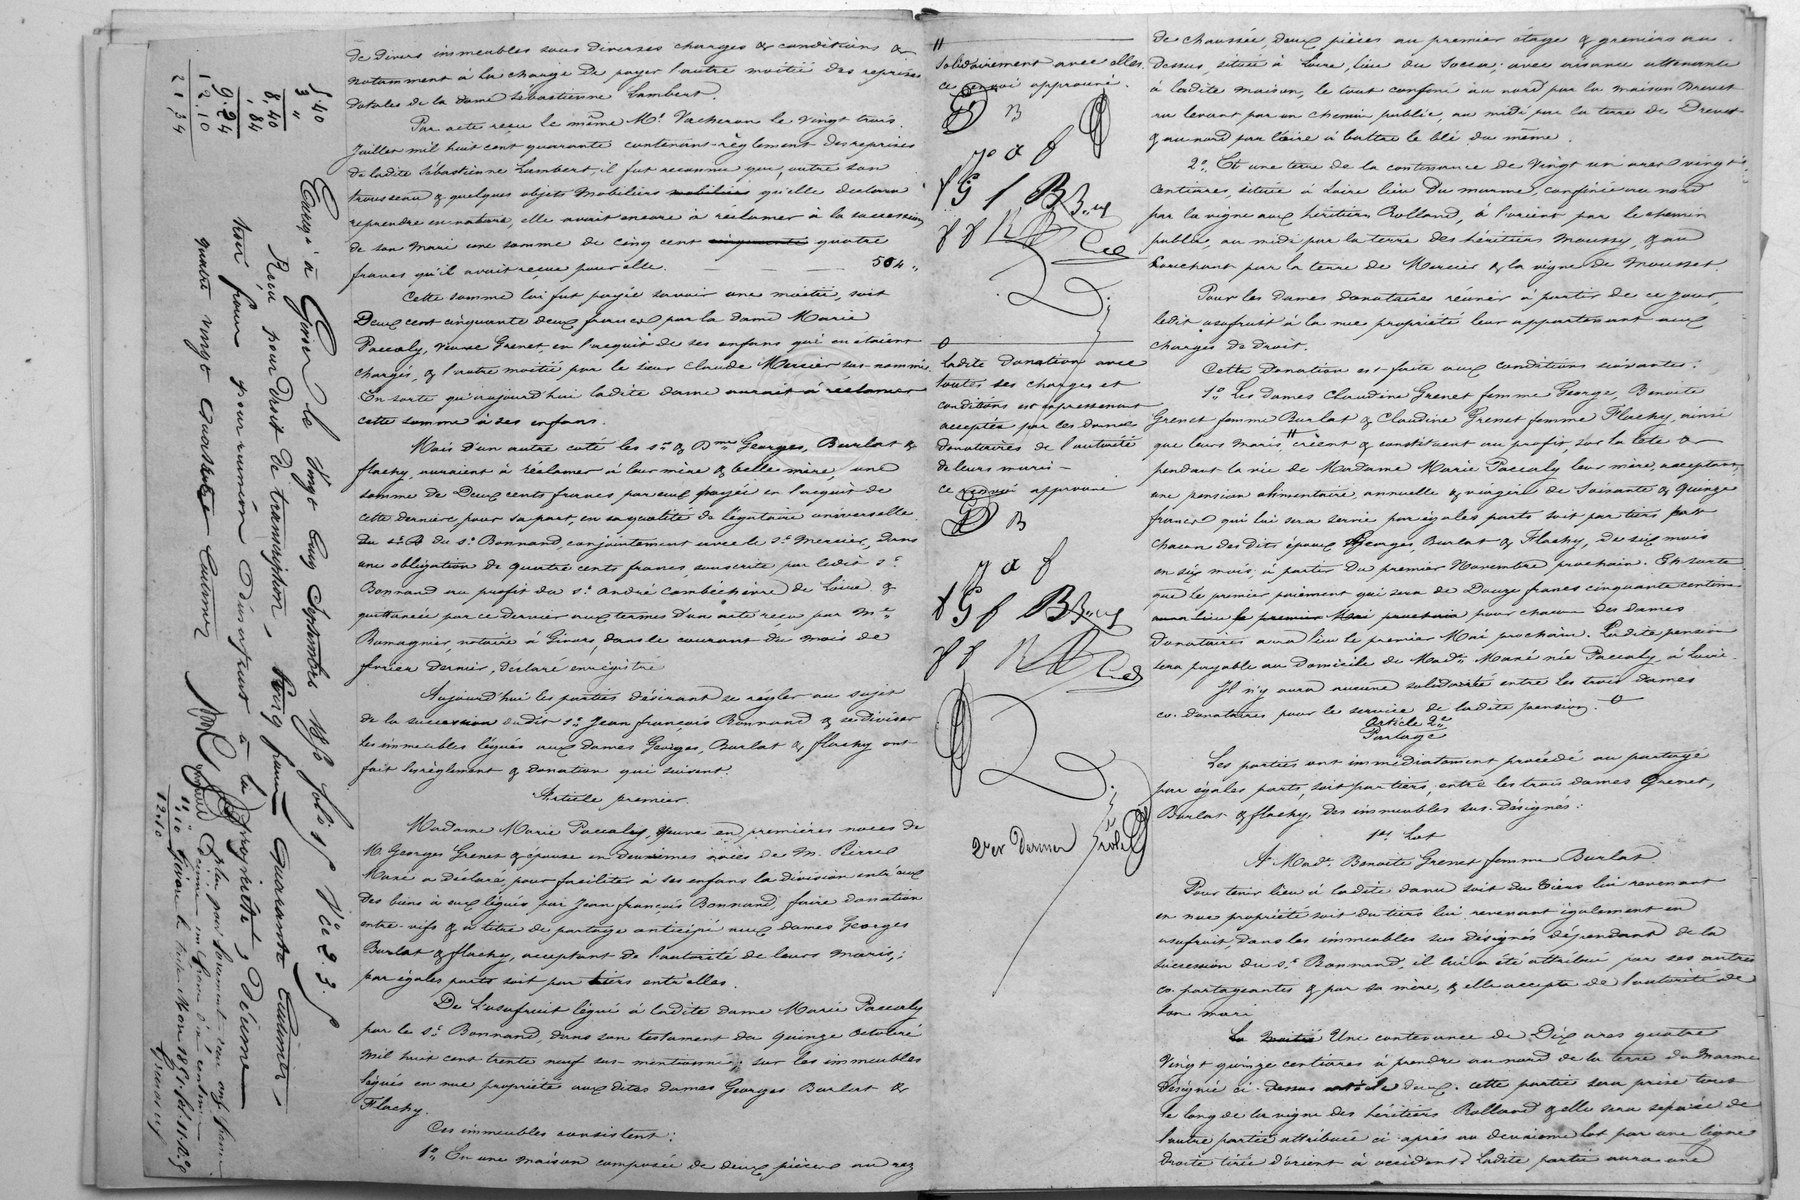 de divers immeubles sous diverses charges & conditions &
notamment à la charge de payer l'autre moitié des reprises
dotales de la dame Sébastienne Lambert.
Par acte reçu le même Me Vacheron le vingt trois
Juillet mil huit cent quarante contenant règlement des reprises
de ladite Sébastienne Lambert, il fut reconnu que, outre son
trousseau & quelques objets mobiliers qu'elle déclara
reprendre en nature, elle avait encore à réclamer à la succession
de son mari une somme de cinq cent cinquante quatre
francs qu'il avait reçue pour elle. 504 "
Cette somme lui fut payée savoir une moitié, soit
Deux cent cinquante deux francs par la dame Marie
Paccaly, veuve Grenet, en l'acquit de ses enfans qui en étaient
chargés, & l'autre moitié par le sieur Claude Mercier sus-nommé.
En sorte qu'aujourd'hui ladite dame aurait à réclamer
cette somme à ses enfans.
Mais d'un autre coté les srs & Dmes Georges, Burlat &
flachy, auraient à réclamer à leur mère & belle mère, une
somme de Deux cents francs par eux payée en l'acquit de
cette dernière, pour sa part, en sa qualité de légataire universelle
du sr Bonnand, conjointement avec le sr Mercier, dans
une obligation de quatre cents francs, souscrite par ledit sr
Bonnand au profit du sr André Combechivre de Loire &
quittancée par ce dernier aux termes d'un acte reçu par Me
Romagnier, notaire à Givors, dans le courant du mois de
février dernier, déclaré enregistré
Aujourd'hui les parties désirant se régler au sujet
de la succession dudit sr Jean françois Bonnand & se diviser
les immeubles légués aux dames Georges, Burlat & flachy ont
fait les règlement & donation qui suivent.
Article premier.
Madame Marie Paccaly, veuve en premières noces de
M. Georges Grenet & épouse en deuxièmes noces de M. Pierre
Mané a déclaré, pour faciliter à ses enfans la division entr'eux
des biens à eux légués par Jean françois Bonnand, faire donation
entre-vifs & à titre de partage anticipé aux dames Georges
Burlat & flachy, acceptant de l'autorité de leurs maris,
par égales parts soit par tiers entr'elles.
De l'usufruit légué à ladite dame Marie Paccaly
par le sr Bonnand, dans son testament du quinze octobre
mil huit cent trente neuf sus-mentionné, sur les immeubles
légués en nue propriété aux dites dames Georges Burlat &
Flachy.
Ces immeubles consistent:
1° En une maison composée de deux pièces au rez
5.40
3 "
8,40
,84
9.24
12.10
21,34
Enregé à Givors le Vingt Cinq Septembre
Reçu pour droit de transcription, Cinq francs Quarante Centimes,
pour réunion d'usufruit à la propriété, Décime
quatre vingt quatre Centimes
11,10
12.10
solidairement avec elles
ce renvoi approuvé.
ladite donation avec
toutes ses charges et
conditions est expressement
acceptée par les dames
donataires de l'autorité
de leurs maris —
ce renvoi approuvé
2er Dernier rôle
de chaussée, deux pièces au premier étage & greniers au
dessus, située à Loire, lieu du Socca, avec aisance attenante
à ladite maison, le tout confiné au nord par la maison Brevet
au levant par un chemin public, au midi par la terre de Drevet
& au nord par l'aire à battre le blé du même.
2° Et une terre de la contenance de vingt un ares vingt
centiares, située à Loire lieu du marme, confinée au nord
par la vigne aux héritiers Rolland, à l'orient par le chemin
public, au midi par la terre des héritiers Moussy, & au
couchant par la terre de Mercier & la vigne de Mousset.
Pour les dames donataires réunir à partir de ce jour,
ledit usufruit à la nue propriété leur appartenant aux
charges de droit.
Cette donation est faite aux conditions suivantes:
1° Les dames Claudine Grenet femme George, Benoite
Grenet femme Burlat & Claudine Grenet femme Flachy, ainsi
que leurs maris, créent & constituent au profit, sur la tête &
pendant la vie de Madame Marie Paccaly, leur mère, acceptant,
une pension alimentaire, annuelle & viagère de Soixante & Quinze
francs qui lui sera servie par égales parts soit par tiers par
chacun des dits époux Georges, Burlat & Flachy, de six mois
en six mois, à partir du premier Novembre prochain. En sorte
que le premier paiement qui sera de Douze francs cinquante centimes
aura lieu le premier Mai prochain pour chacun des dames
donataires aura lieu le premier Mai prochain. Ladite pension
sera payable au domicile de Mad. Mané née Paccaly, à Loire.
Il n'y aura aucune solidarité entre les trois dames
co-donataires pour le service de ladite pension.
Article 2e
Partage
Les parties ont immédiatement procédé au partage
par égales parts, soit par tiers, entre les trois dames Grenet,
Burlat & flachy, des immeubles sus-désignés:
1er Lot
A Made Benoite Grenet femme Burlat.
Pour tenir lieu à ladite dame soit du tiers lui revenant
en nue propriété soit du tiers lui revenant également en
usufruit, dans les immeubles sus désignés dépendant de la
succession du sr Bonnand, il lui a été attribué par ses autres
co-partageantes & par sa mère, & elle accepte de l'autorité de
son mari
La moitié Une contenance de Dix ares quatre
vingt quinze centiares à prendre au nord de la terre du Marme
désignée ci-dessus article deux. Cette partie sera prise tout
le long de la vigne des héritiers Rolland & elle sera séparée de
l'autre partie attribuée ci-après au deuxième lot par une ligne
droite tirée d'orient à occident. Ladite partie aura une